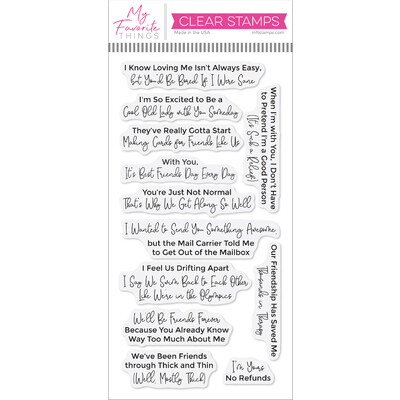 My
Favorite
THINGS
CLEAR STAMPS
Made in the USA
mftstamps.com
I Know Loving Me Isn't Always Easy,
but You'd Be Bored If I Were Sane
I'm So Excited to Be a
Cool Old Lady with You Someday
They've Really Gotta Start
Making Cards for Friends Like Us
With You,
It's Best Friends Day Every Day
You're Just Not Normal
That's Why We Get Along So Well
I Wanted to Send You Something Awesome
but the Mail Carrier Told Me
to Get Out of the Mailbox
I Feel Us Drifting Apart
I Say We Swim Back to Each Other
Like We're in the Olympics
We'll Be Friends Forever
Because You Already Know
Way Too Much About Me
We've Been Friends
through Thick and Thin
(Well, Mostly Thick)
When I'm with You, I Don't Have
to Pretend I'm a Good Person
(It's Such a Relief)
Our Friendship Has Saved Me
Thousands in Therapy
I'm Yours
No Refunds